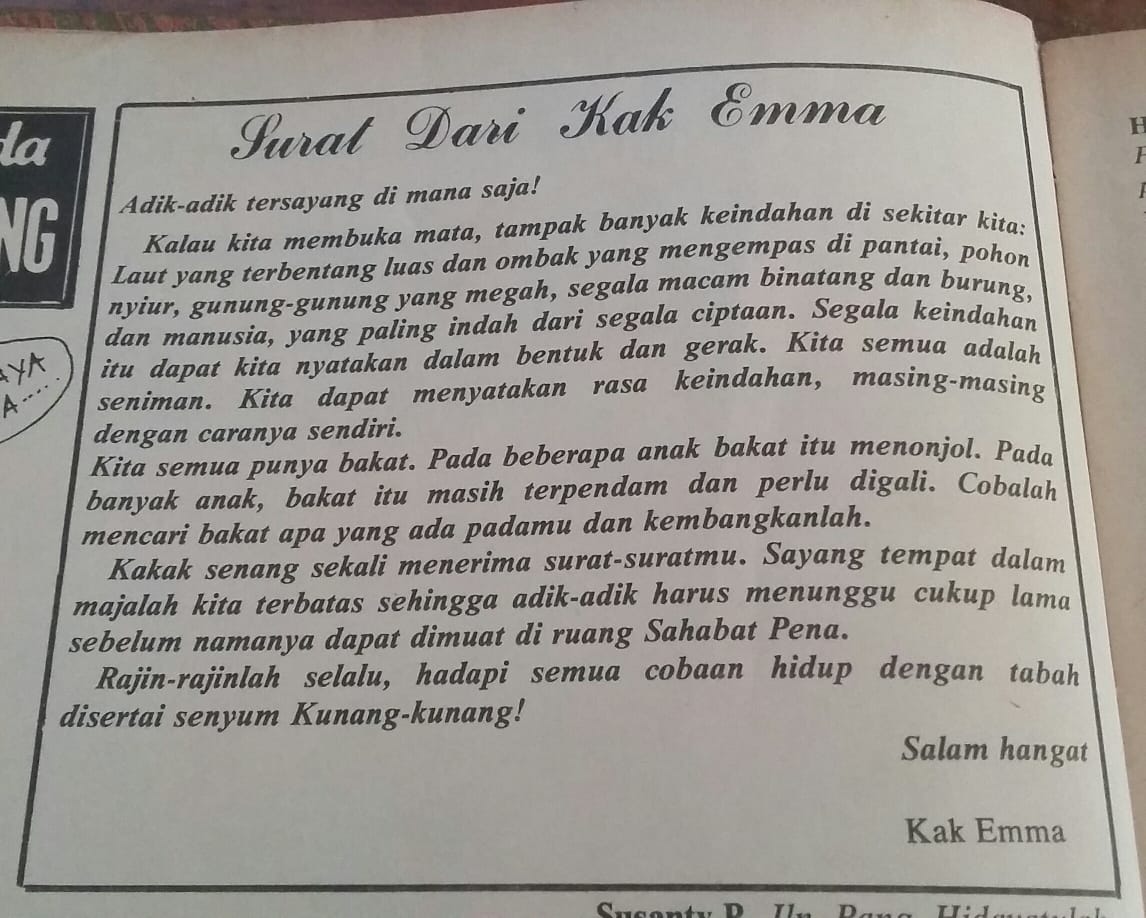 Surat Dari Kak Emma
Adik-adik tersayang di mana saja!
Kalau kita membuka mata, tampak banyak keindahan di sekitar kita:
Laut yang terbentang luas dan ombak yang mengempas di pantai, pohon
nyiur, gunung-gunung yang megah, segala macam binatang dan burung,
dan manusia, yang paling indah dari segala ciptaan. Segala keindahan
itu dapat kita nyatakan dalam bentuk dan gerak. Kita semua adalah
seniman. Kita dapat menyatakan rasa keindahan, masing-masing
dengan caranya sendiri.
Kita semua punya bakat. Pada beberapa anak bakat itu menonjol. Pada
banyak anak, bakat itu masih terpendam dan perlu digali. Cobalah
mencari bakat apa yang ada padamu dan kembangkanlah.
Kakak senang sekali menerima surat-suratmu. Sayang tempat dalam
majalah kita terbatas sehingga adik-adik harus menunggu cukup lama
sebelum namanya dapat dimuat di ruang Sahabat Pena.
Rajin-rajinlah selalu, hadapi semua cobaan hidup dengan tabah
disertai senyum Kunang-kunang!
Salam hangat
Kak Emma